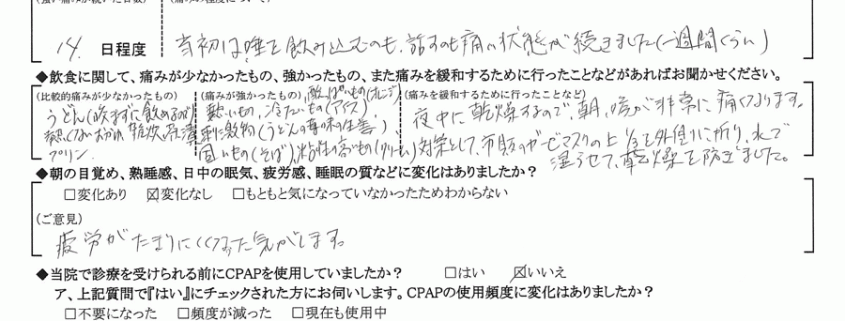 (強い痛みが続いた日数) (痛みの程度について)
14 日程度 当初は唾を飲み込むのも、話すのも痛い状態が続きました(一週間くらい)
◆飲食に関して、痛みが少なかったもの、強かったもの、また痛みを緩和するために行ったことなどがあればお聞かせください。
(比較的痛みが少なかったもの) (痛みが強かったもの) 酸っぱいもの(オレンジ) (痛みを緩和するために行ったことなど)
うどん(噛まずに飲めるので) 熱いもの、冷たいもの(アイス) 夜中に乾燥するので、朝、喉が非常に痛くなります。
熱くないおかゆ、雑炊、 刺激物(うどんの薬味の生姜) 対策として、市販のガーゼマスクの上1/3を外側に折り、水で
プリン 固いもの(そば)、粘性の高いもの 湿らせて、乾燥を防ぎました。
◆朝の目覚め、熟睡感、日中の眠気、疲労感、睡眠の質などに変化はありましたか?
□変化あり ☒変化なし □もともと気になっていなかったためわからない
(ご意見)
疲労がたまりにくくなった気がします。
◆当院で診療を受けられる前にCPAPを使用していましたか? □はい ☒いいえ
ア、上記質問で『はい』にチェックされた方にお伺いします。CPAPの使用頻度に変化はありましたか?
□不要になった □頻度が減った □現在も使用中